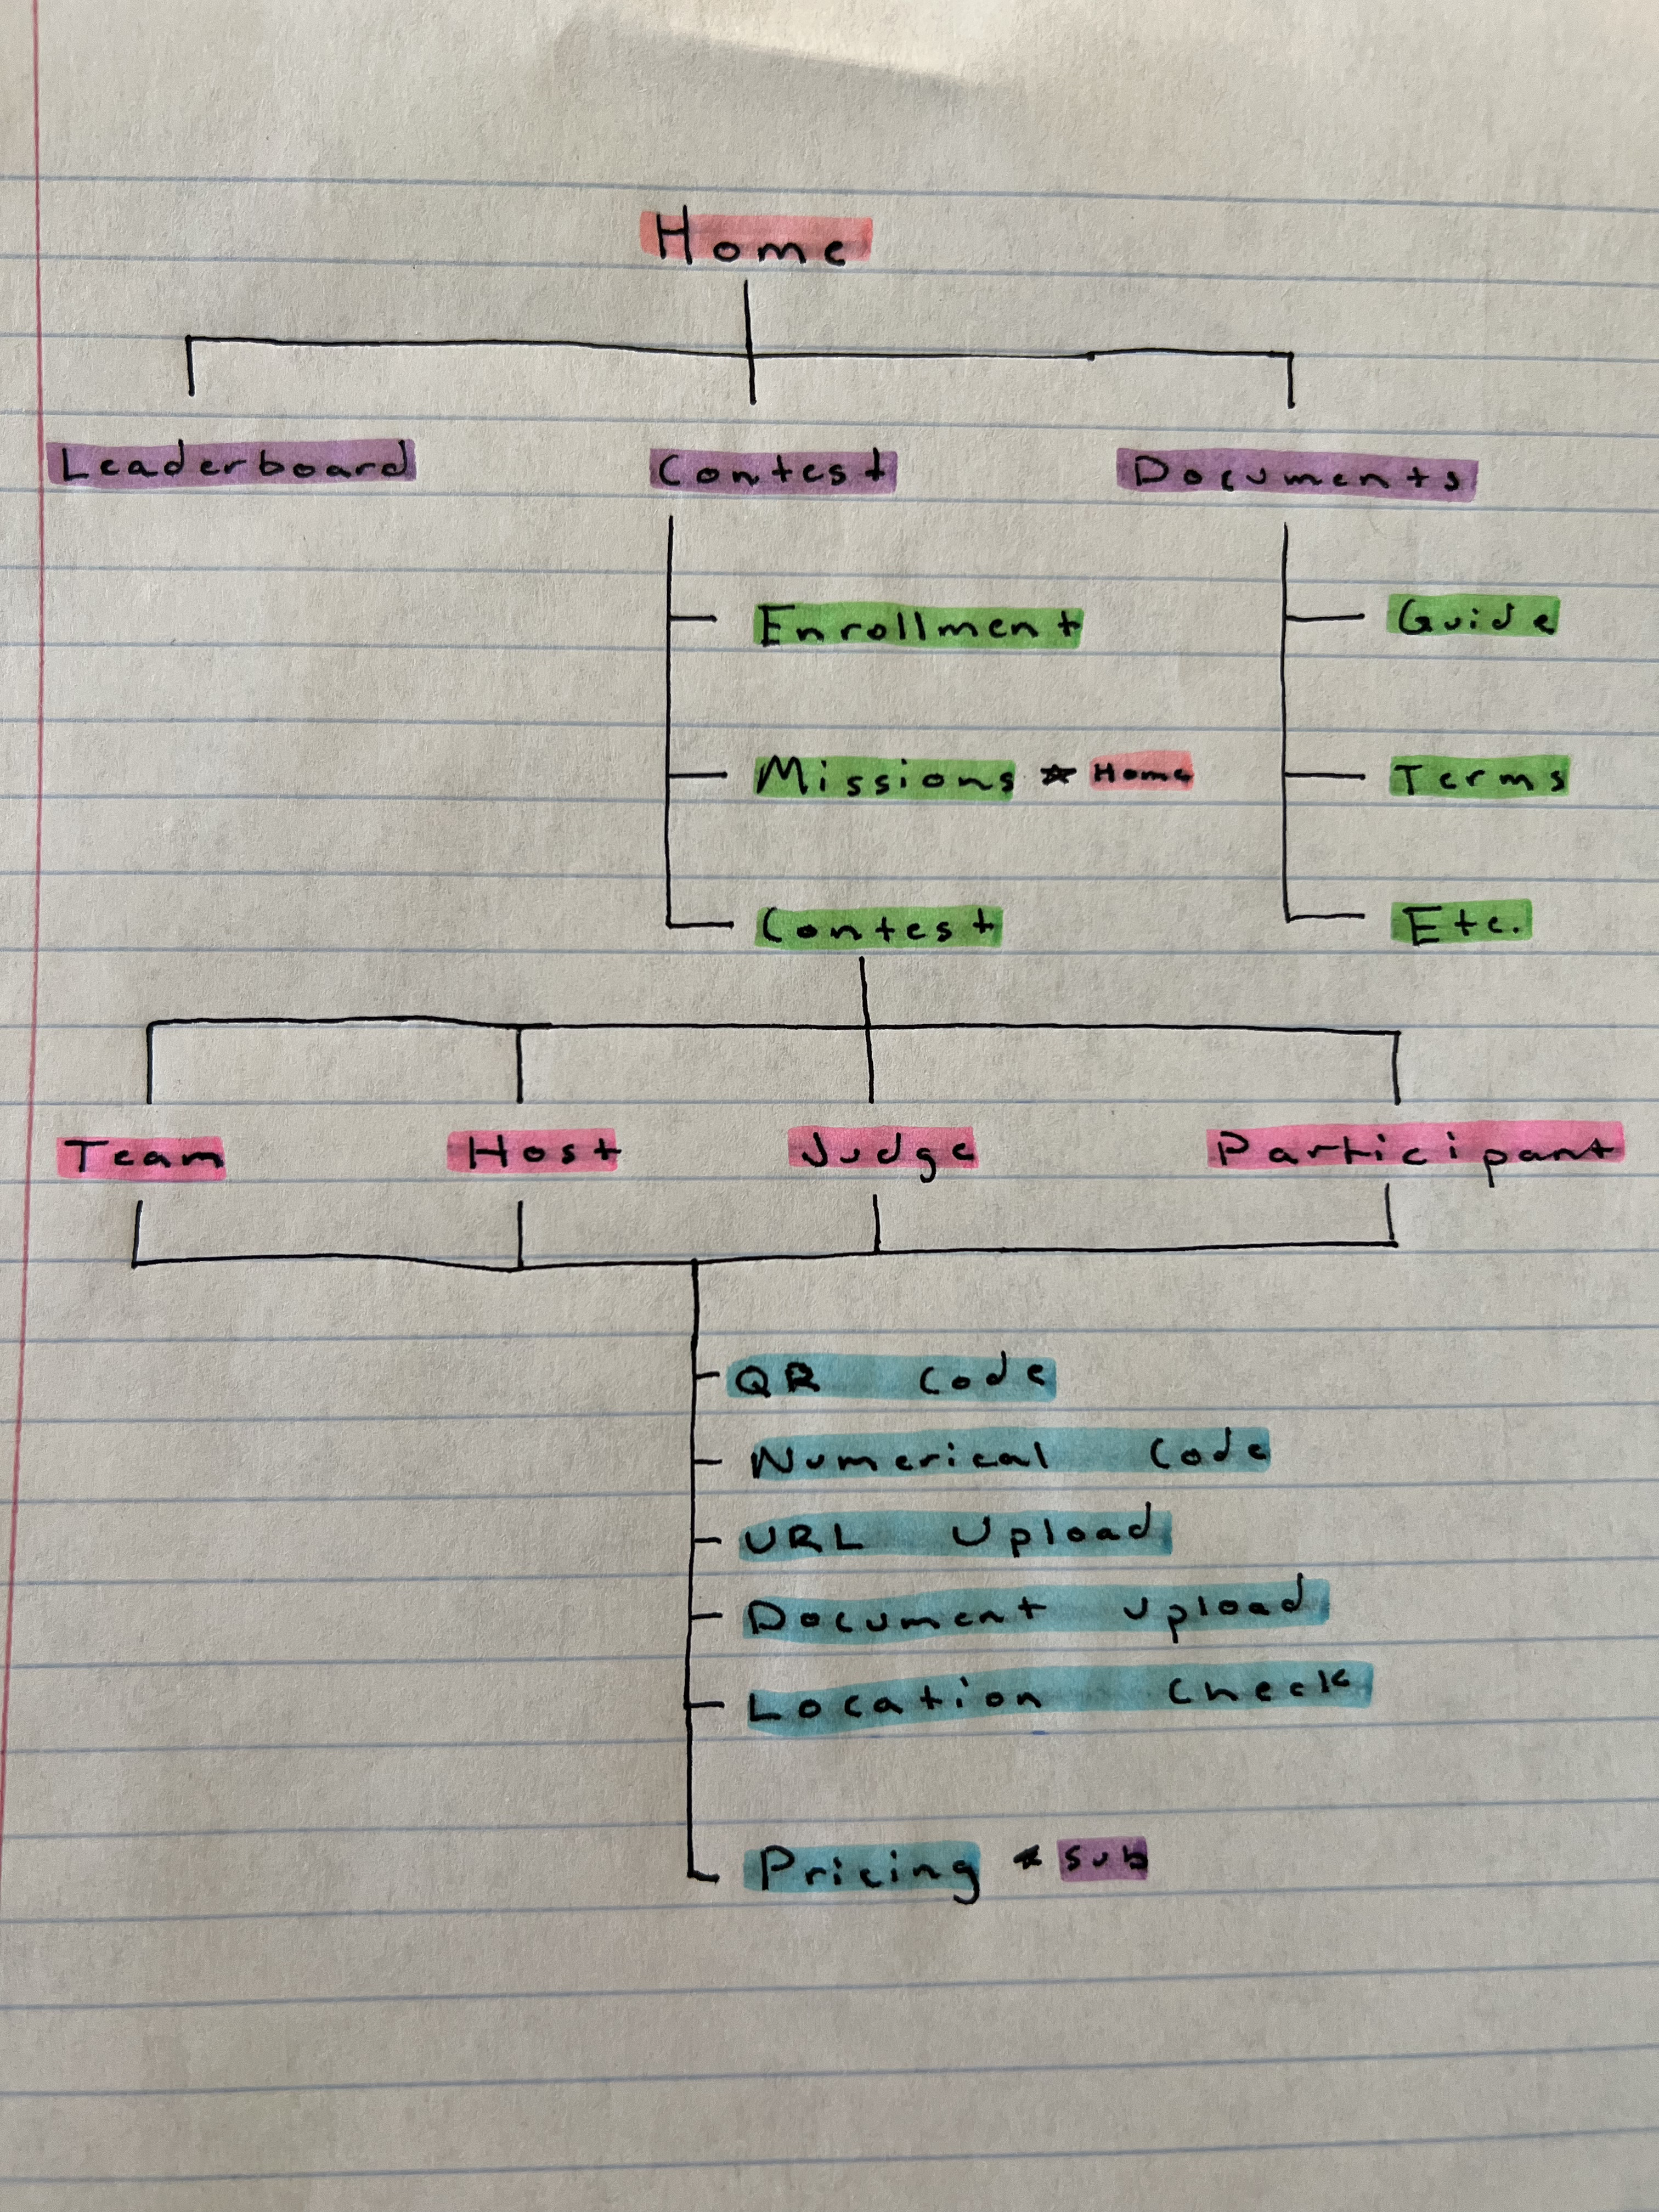 Home
Leaderboard Contest Documents
Enrollment Guide
Missions * Home Terms
Contest Etc.
Team Host Judge Participant
QR Code
Numerical Code
URL Upload
Document Upload
Location Check
Pricing * Sub